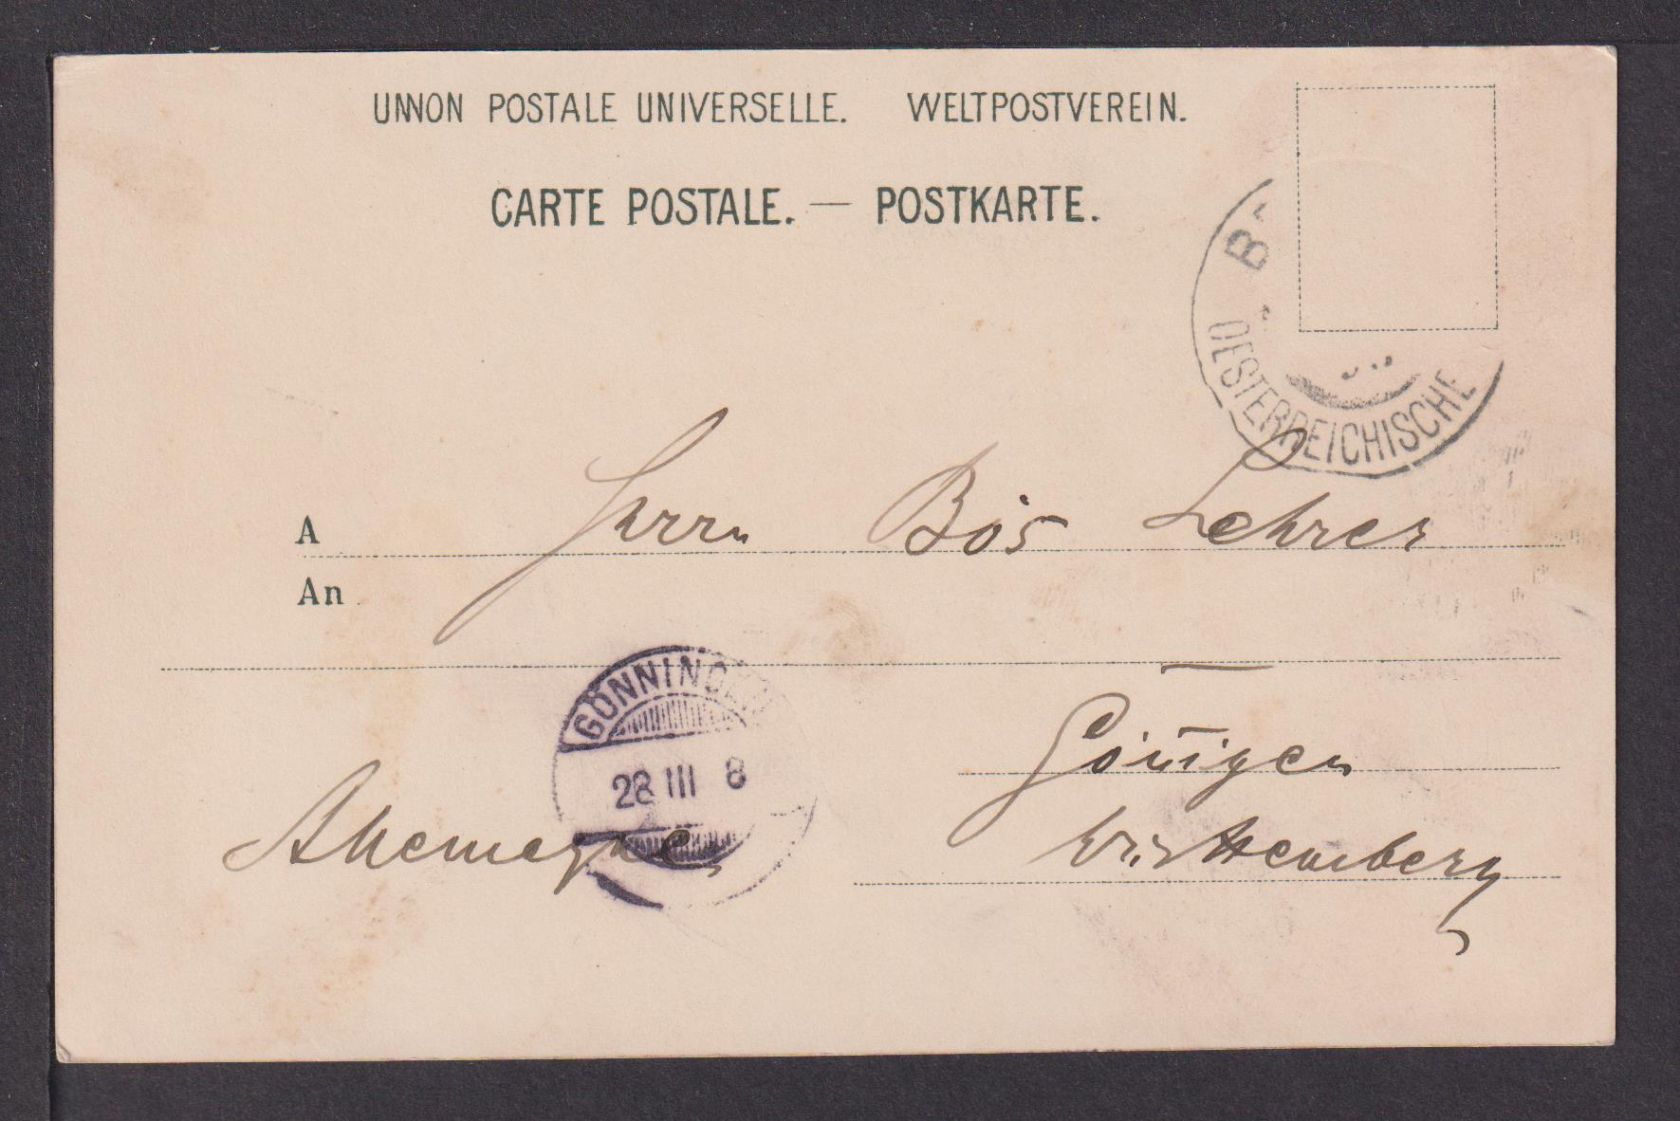 UNION POSTALE UNIVERSELLE. WELTPOSTVEREIN.
CARTE POSTALE. — POSTKARTE.
OESTERREICHISCHE
A
An
Herrn Bös Lehrer
GÖNNINGEN
28 III 8
Göningen
Allemagne
Württemberg